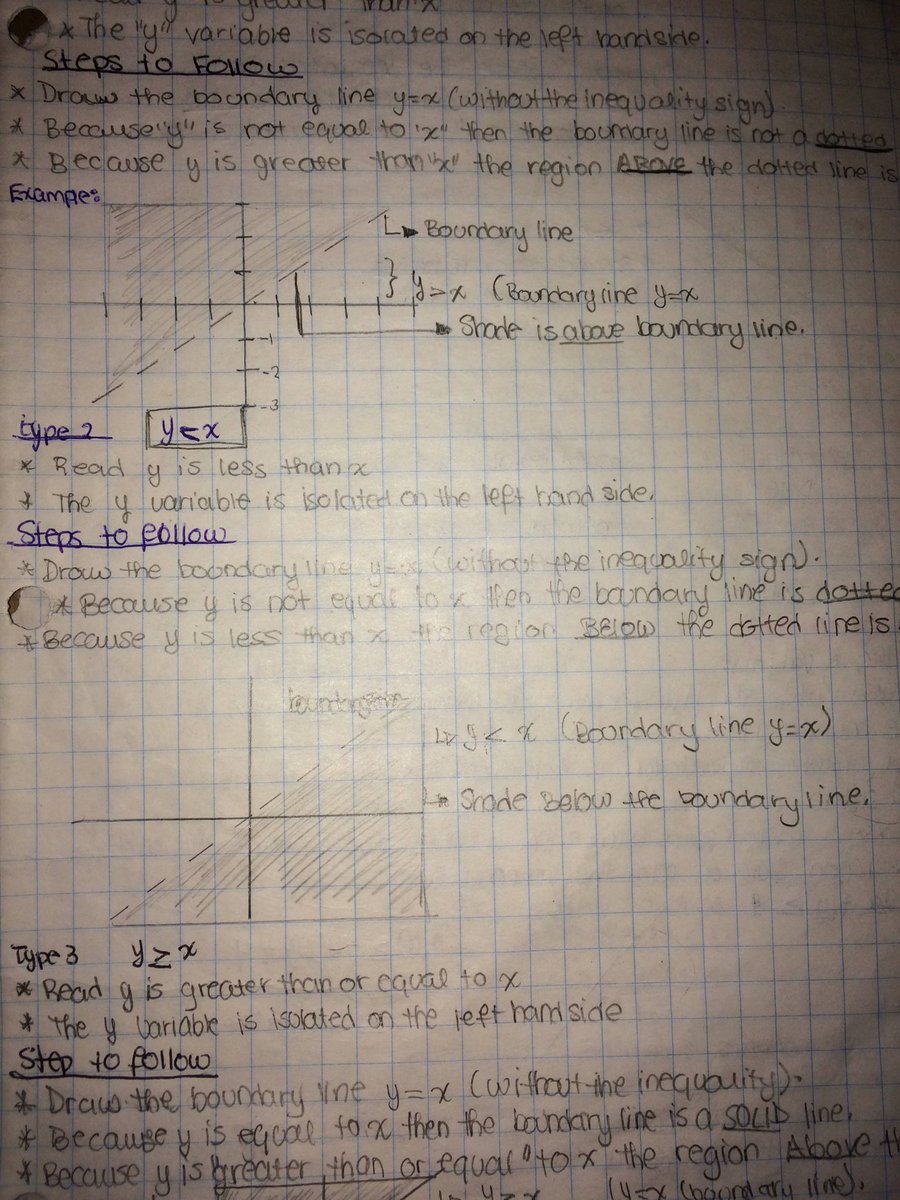 y is greater than x
* The "y" variable is isolated on the left handside.
Steps to Follow
* Draw the boundary line y=x (without the inequality sign)
* Because "y" is not equal to "x" then the boundary line is not a dotted
* Because y is greater than "x" the region ABOVE the dotted line is
Example:
Boundary line
} y>x (Boundary line y=x
Shade is above boundary line.
-1
-2
-3
Type 2 y<x
* Read y is less than x
* The y variable is isolated on the left hand side.
Steps to follow
* Draw the boundary line y=x (without the inequality sign).
* Because y is not equal to x then the boundary line is dotted
* Because y is less than x the region BELOW the dotted line is
y < x (Boundary line y=x)
Shade Below the boundary line.
Type 3 y≥x
* Read y is greater than or equal to x
* The y variable is isolated on the left hand side
Step to follow
* Draw the boundary line y=x (without the inequality).
* Because y is equal to x then the boundary line is a SOLID line.
* Because y is greater than or equal "to x the region Above th
y≥x (y=x (boundary line).